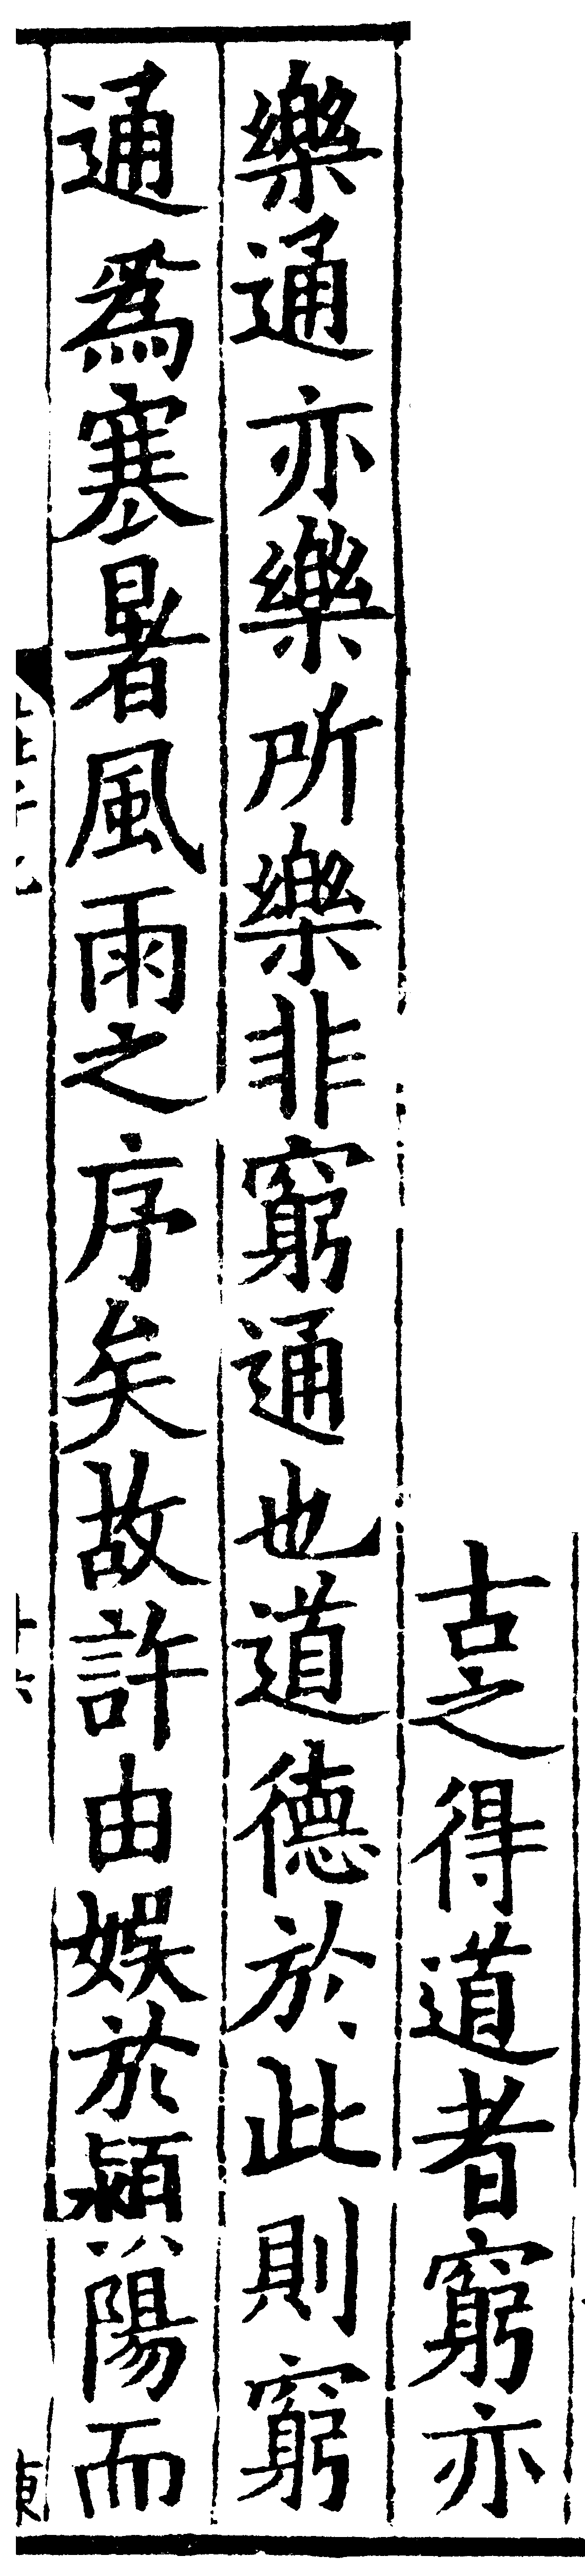 古之得道者窮亦
樂通亦樂所樂非窮通也道德於此則窮
通爲塞暑風雨之序矣故許由娛於潁陽而